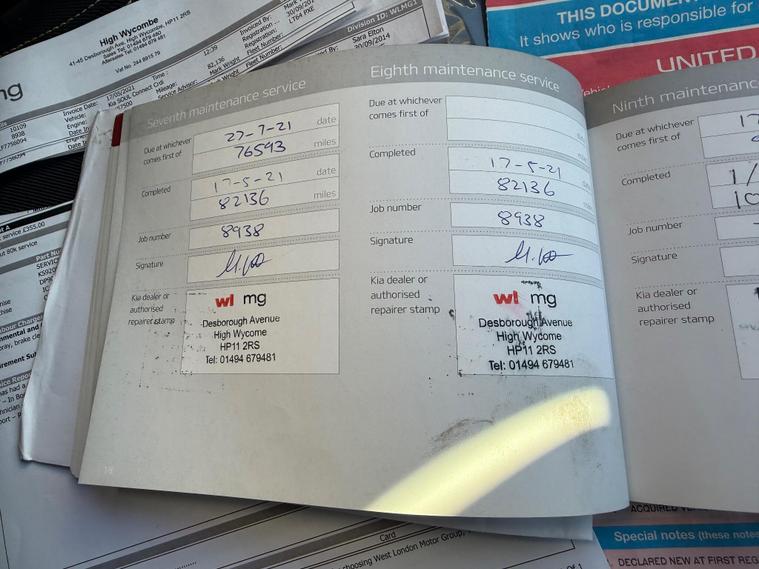 High Wycombe
41-45 Desborough Ave, High Wycombe, HP11 2RS
Sales Tel: 01494 679 480
Aftersales Tel: 01494 679 481
Vat No: 244 8915 79
Division ID: WLMG1
Sara Elton
30/09/2014
Invoiced By:
Registration:
Fleet Number:
LT64 PXE
Invoice Date:
17/05/2021
Time :
12:39
Kia SOUL Connect Crdi
Mileage:
82,136
Service Advisor:
Mark Wright
10109
8938
service £355.00
THIS DOCUMEN
It shows who is responsible for
UNITED
Seventh maintenance service
Due at whichever
comes first of
27-7-21
date
76593
miles
Completed
17-5-21
date
82136
miles
Job number
8938
Signature
Kia dealer or
authorised
repairer stamp
wl mg
Desborough Avenue
High Wycome
HP11 2RS
Tel: 01494 679481
18
Eighth maintenance service
Due at whichever
comes first of
Completed
17-5-21
82136
Job number
8938
Signature
Kia dealer or
authorised
repairer stamp
wl mg
Desborough Avenue
High Wycome
HP11 2RS
Tel: 01494 679481
Ninth maintenance
Due at whichever
comes first of
17
Completed
1/
10
Job number
Signature
Kia dealer or
authorised
repairer stamp
Card
choosing West London Motor Group,
Special notes (these notes
DECLARED NEW AT FIRST REG